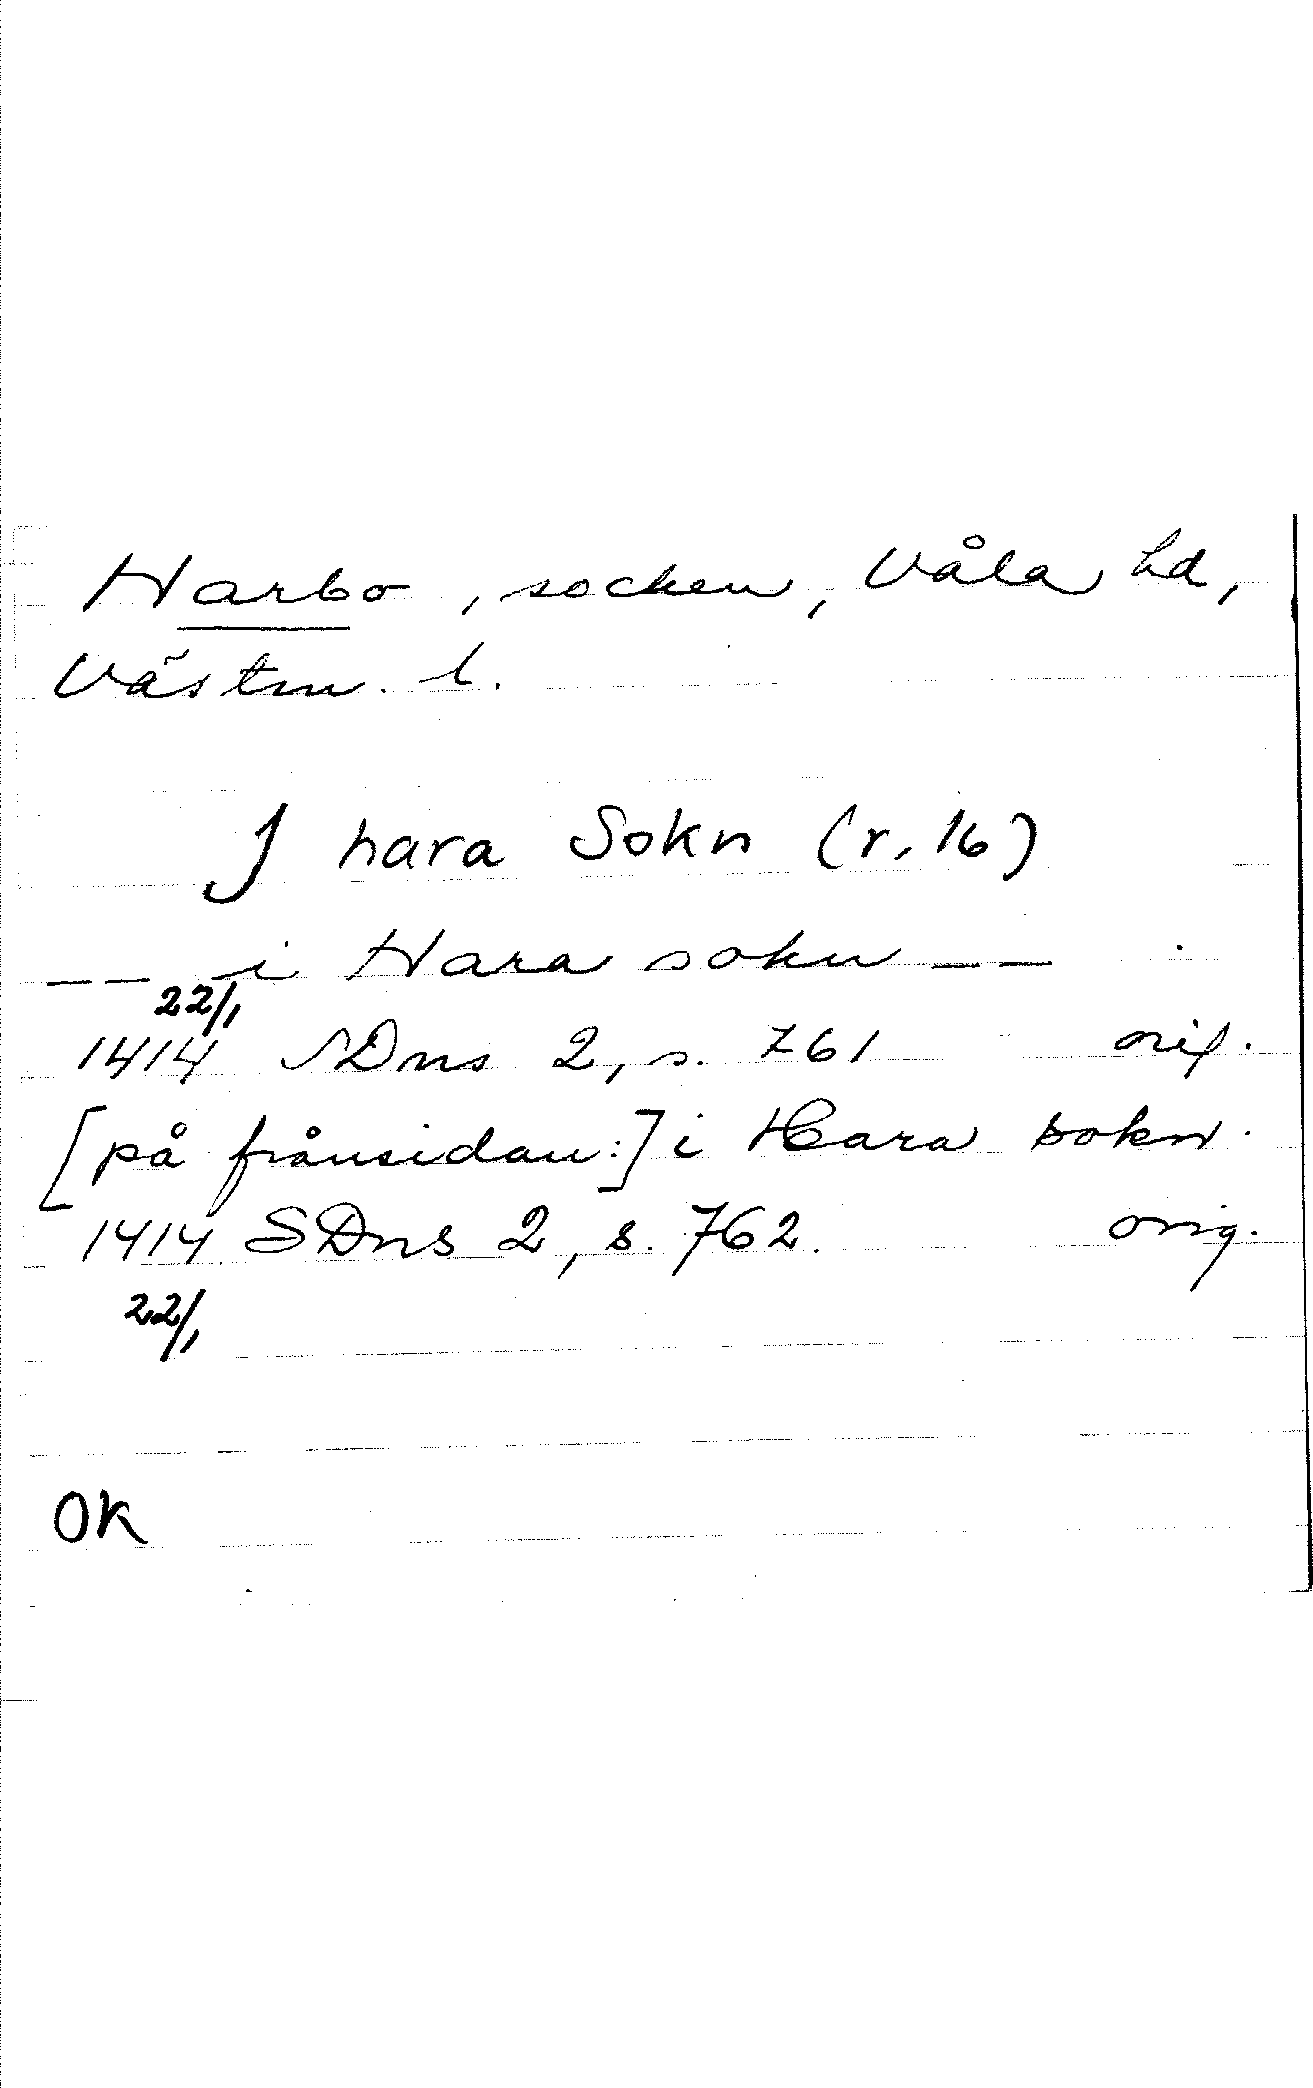 Harbo, socken, Våla hd,
Västm. l.
J hara Sokn (r. 16)
–– i Hara sokn ––
22/1
1414 SDns 2, s. 761 orig.
[på frånsidan:] i Hara sokn.
1414 SDns 2, s. 762. orig.
22/1
OK